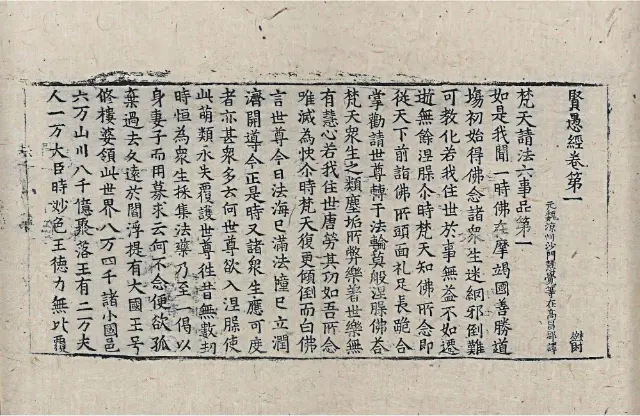 賢愚經卷第一
元魏凉州沙門慧覺等在高昌郡譯
梵天請法六事品第一
如是我聞一時佛在摩竭國善勝道
塲初始得佛念諸衆生迷網邪倒難
可教化若我住世於事無益不如遷
逝無餘涅槃尒時梵天知佛所念即
從天下前詣佛所頭面礼足長跪合
掌勸請世尊轉于法輪莫般涅槃佛荅
梵天衆生之類塵垢所弊樂著世樂無
有慧心若我住世唐勞其功如吾所念
唯滅為快尒時梵天復更傾倒而白佛
言世尊今日法海已滿法幢已立潤
濟開導今正是時又諸衆生應可度
者亦甚衆多云何世尊欲入涅槃使
此萌類永失覆護世尊徃昔無數劫
時恒為衆生採集法藥乃至一偈以
身妻子而用募求云何不念便欲孤
棄過去久遠於閻浮提有大國王号
修樓婆領此世界八万四千諸小國邑
六万山川八千億聚落王有二万夫
人一万大臣時妙色王德力無比覆